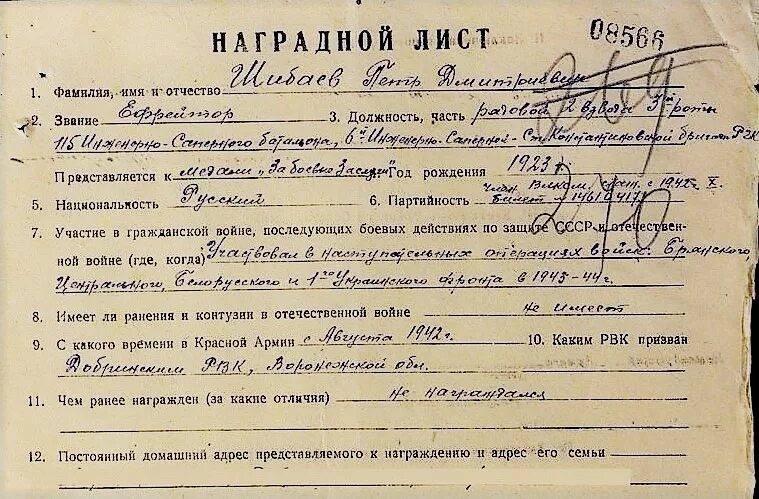 НАГРАДНОЙ ЛИСТ
08566
1. Фамилия, имя и отчество Шибаев Петр Дмитриевич
2. Звание Ефрейтор 3. Должность, часть рядовой 2 взвода 3й роты
115 Инженерно-Саперного батальона, 6й Инженерно-Саперной-Ст. Константиновской бригады РГК
Представляется к медали „За боевые Заслуги" Год рождения 1923 г.
5. Национальность Русский 6. Партийность член с 1942 г. X.
билет №
7. Участие в гражданской войне, последующих боевых действиях по защите СССР и отечествен-
ной войне (где, когда) Участвовал в наступательных операциях войск. Брянского,
Центрального, Белорусского и 1го Украинского фронта в 1943-44 г.
8. Имеет ли ранения и контузии в отечественной войне не имеет
9. С какого времени в Красной Армии с Августа 1942 г. 10. Каким РВК призван
Добринским РВК, Воронежской обл.
11. Чем ранее награжден (за какие отличия) не награждался
12. Постоянный домашний адрес представляемого к награждению и адрес его семьи